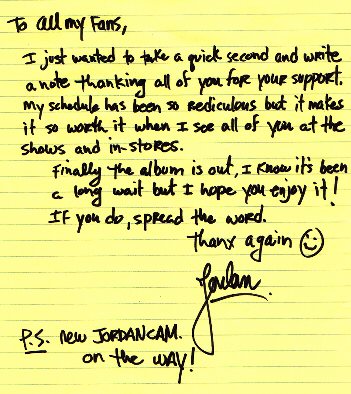 To all my Fans,
I just wanted to take a quick second and write
a note thanking all of you for your support.
My schedule has been so rediculous but it makes
it so worth it when I see all of you at the
shows and in-stores.
Finally the album is out, I know it's been
a long wait but I hope you enjoy it!
If you do, spread the word.
Thanx again ☺
Jordan
P.S. new JORDANCAM.
on the WAY!